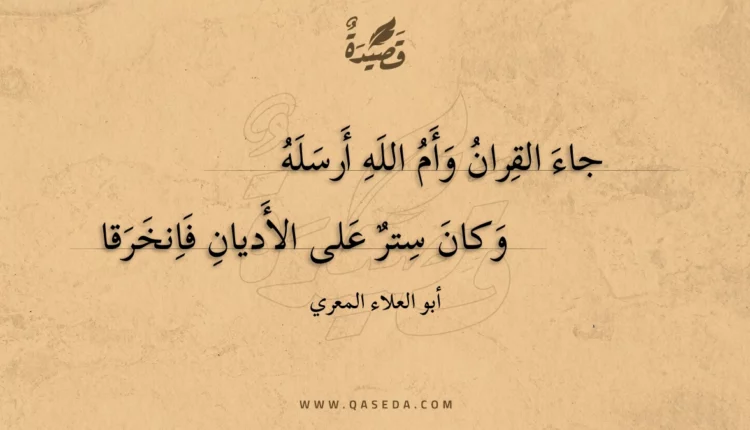 قَصِيْدَةٌ
جاءَ القِرانُ وَأَمُ اللَهِ أَرسَلَهُ
وَكانَ سِترٌ عَلى الأَديانِ فَاِنخَرَقا
أبو العلاء المعري
WWW.QASEDA.COM